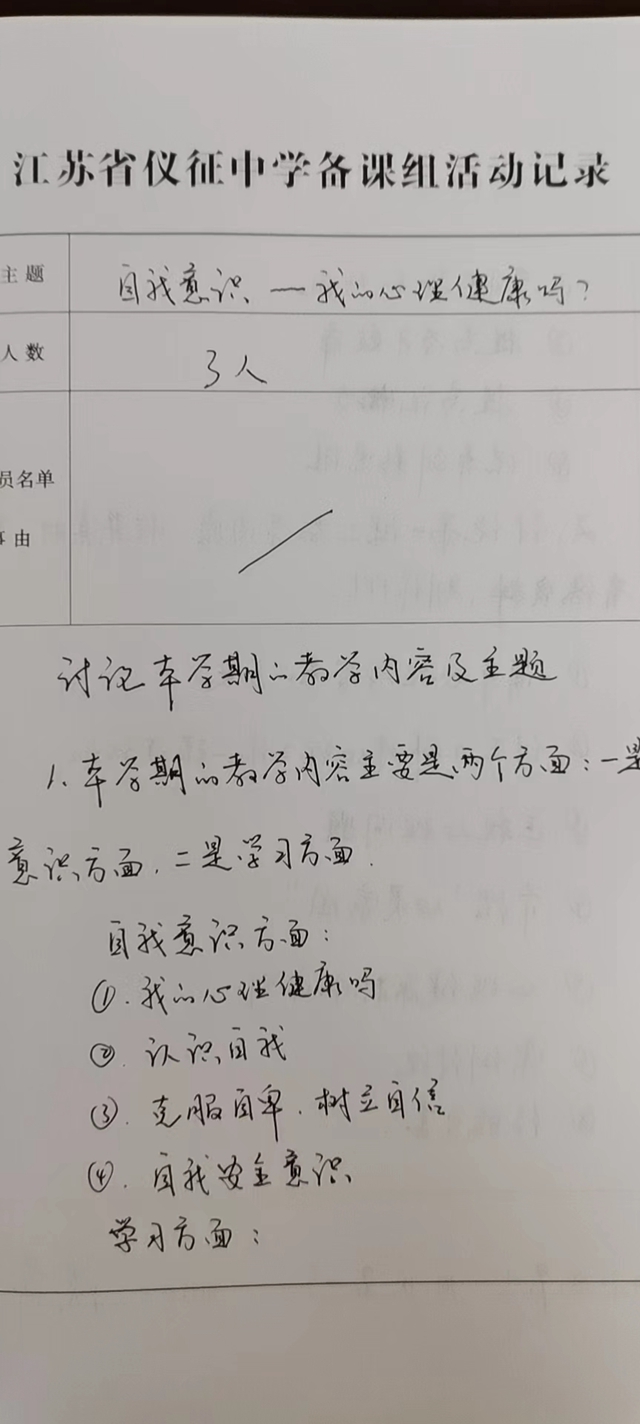 江苏省仪征中学备课组活动记录
主题 自我意识 — 我的心理健康吗?
人数 3人
员名单
事由
讨论本学期的教学内容及主题
1. 本学期的教学内容主要是两个方面:一是
意识方面,二是学习方面.
自我意识方面:
①.我的心理健康吗
②.认识自我
③.克服自卑.树立自信
④.自我安全意识
学习方面: